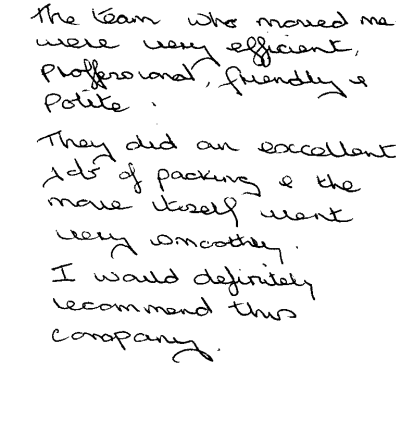 The team who moved me
were very efficient,
Proffesional, friendly &
Polite.
They did an excellent
Job of packing & the
move itself went
very smoothly.
I would definitely
recommend this
company.